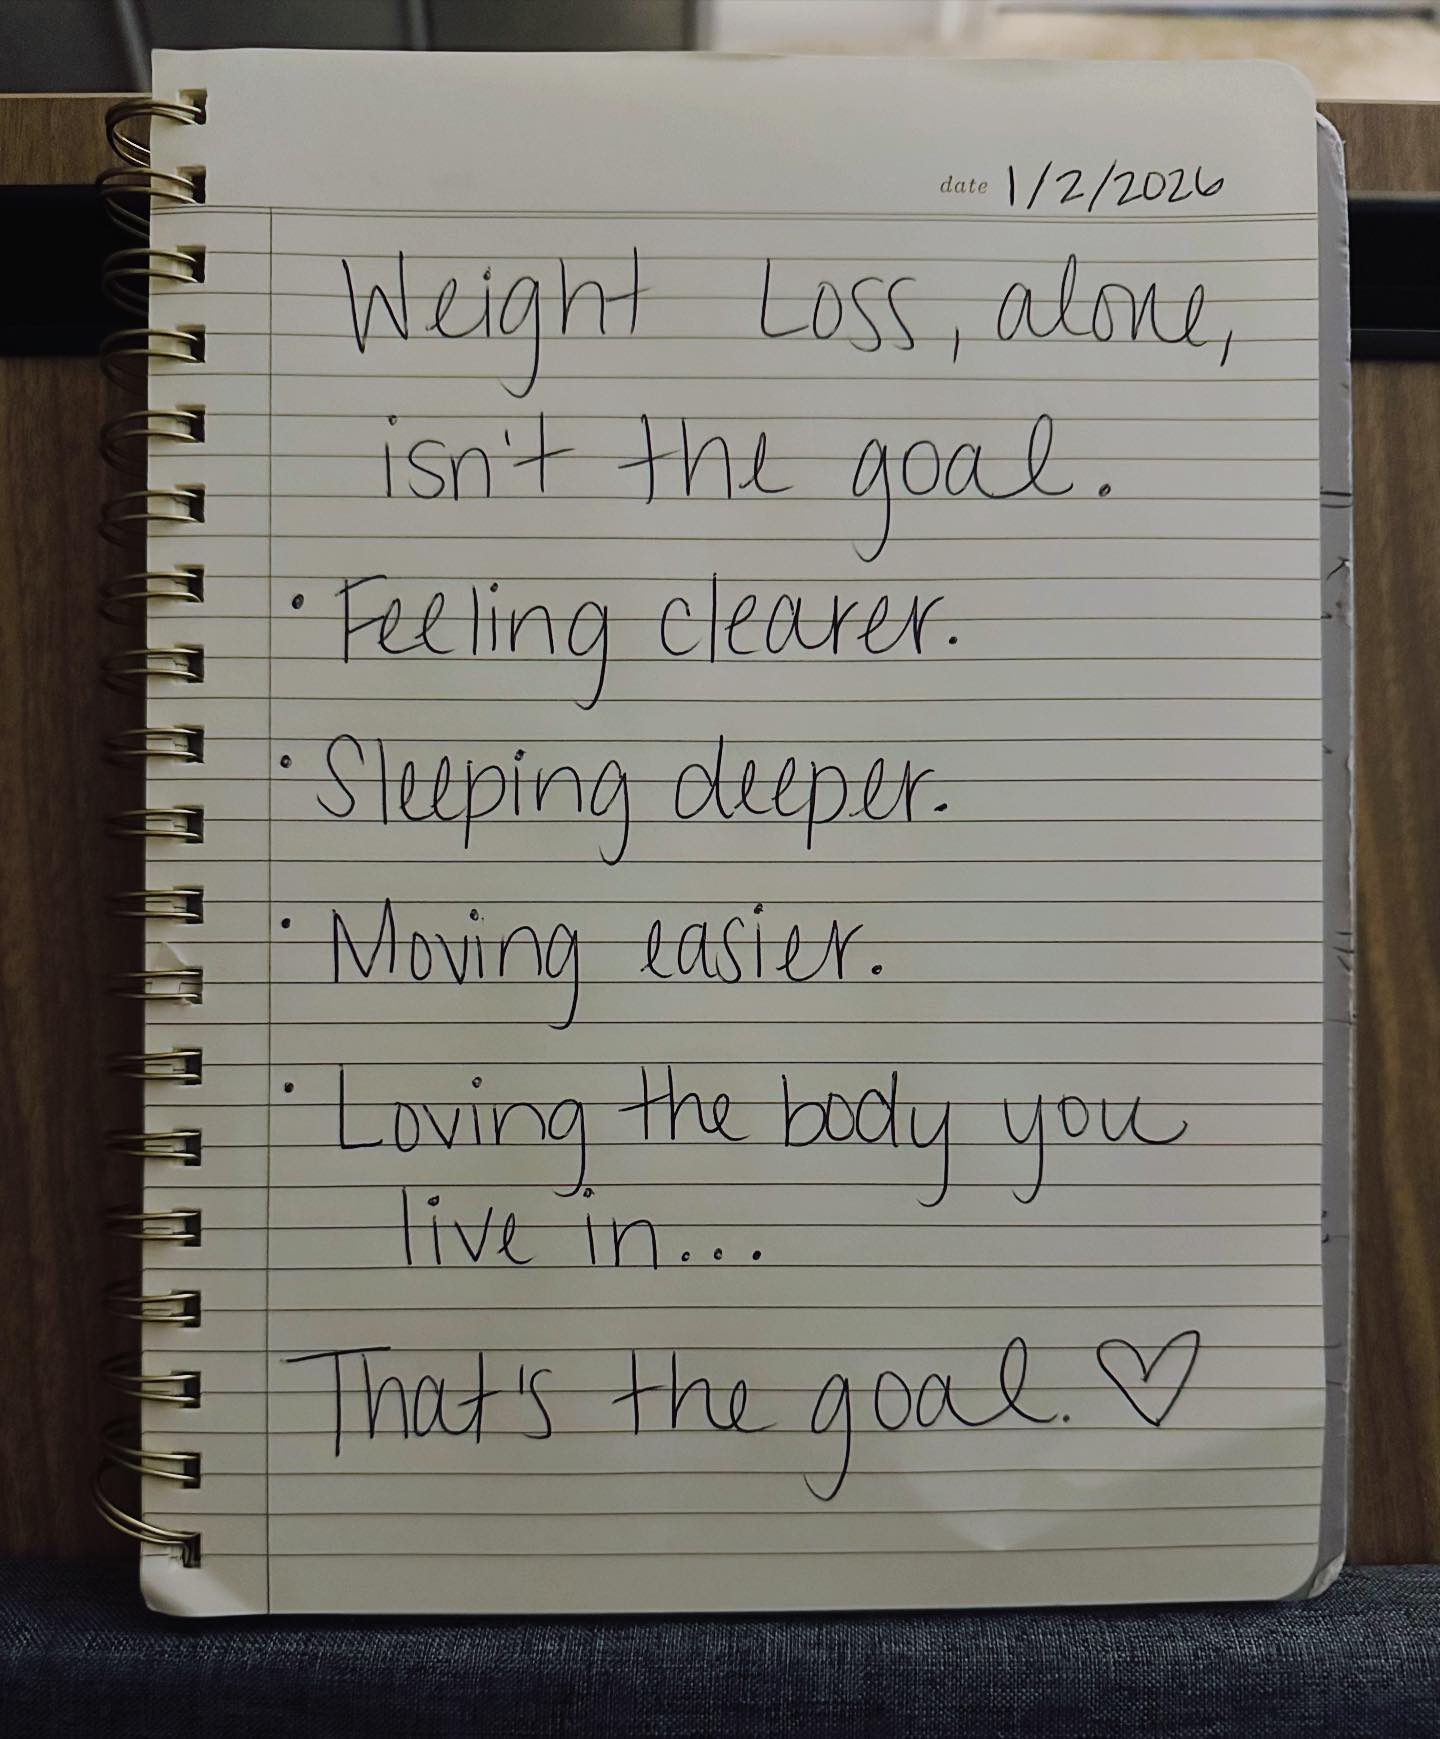 date 1/2/2026
Weight Loss, alone,
isn't the goal.
• Feeling clearer.
• Sleeping deeper.
• Moving easier.
• Loving the body you
live in...
That's the goal. ♡